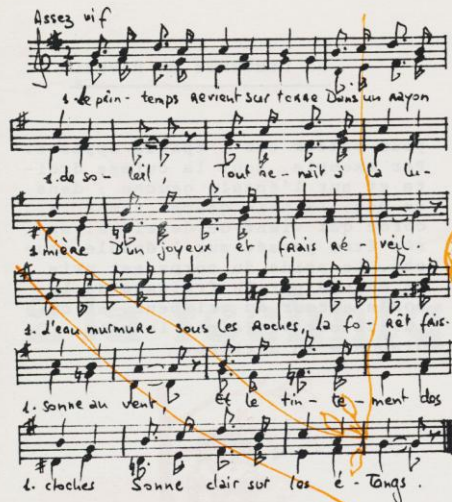 Assez vif
1. Le prin- temps Revient sur terre Dans un rayon
1. de so- leil, Tout re- naît à la lu-
1. mière D'un joyeux et frais ré- veil.
1. L'eau murmure sous les Roches, la fo- Rêt fris-
1. sonne au vent, Et le tin- te- ment des
1. cloches Sonne clair sur les é- Tangs.